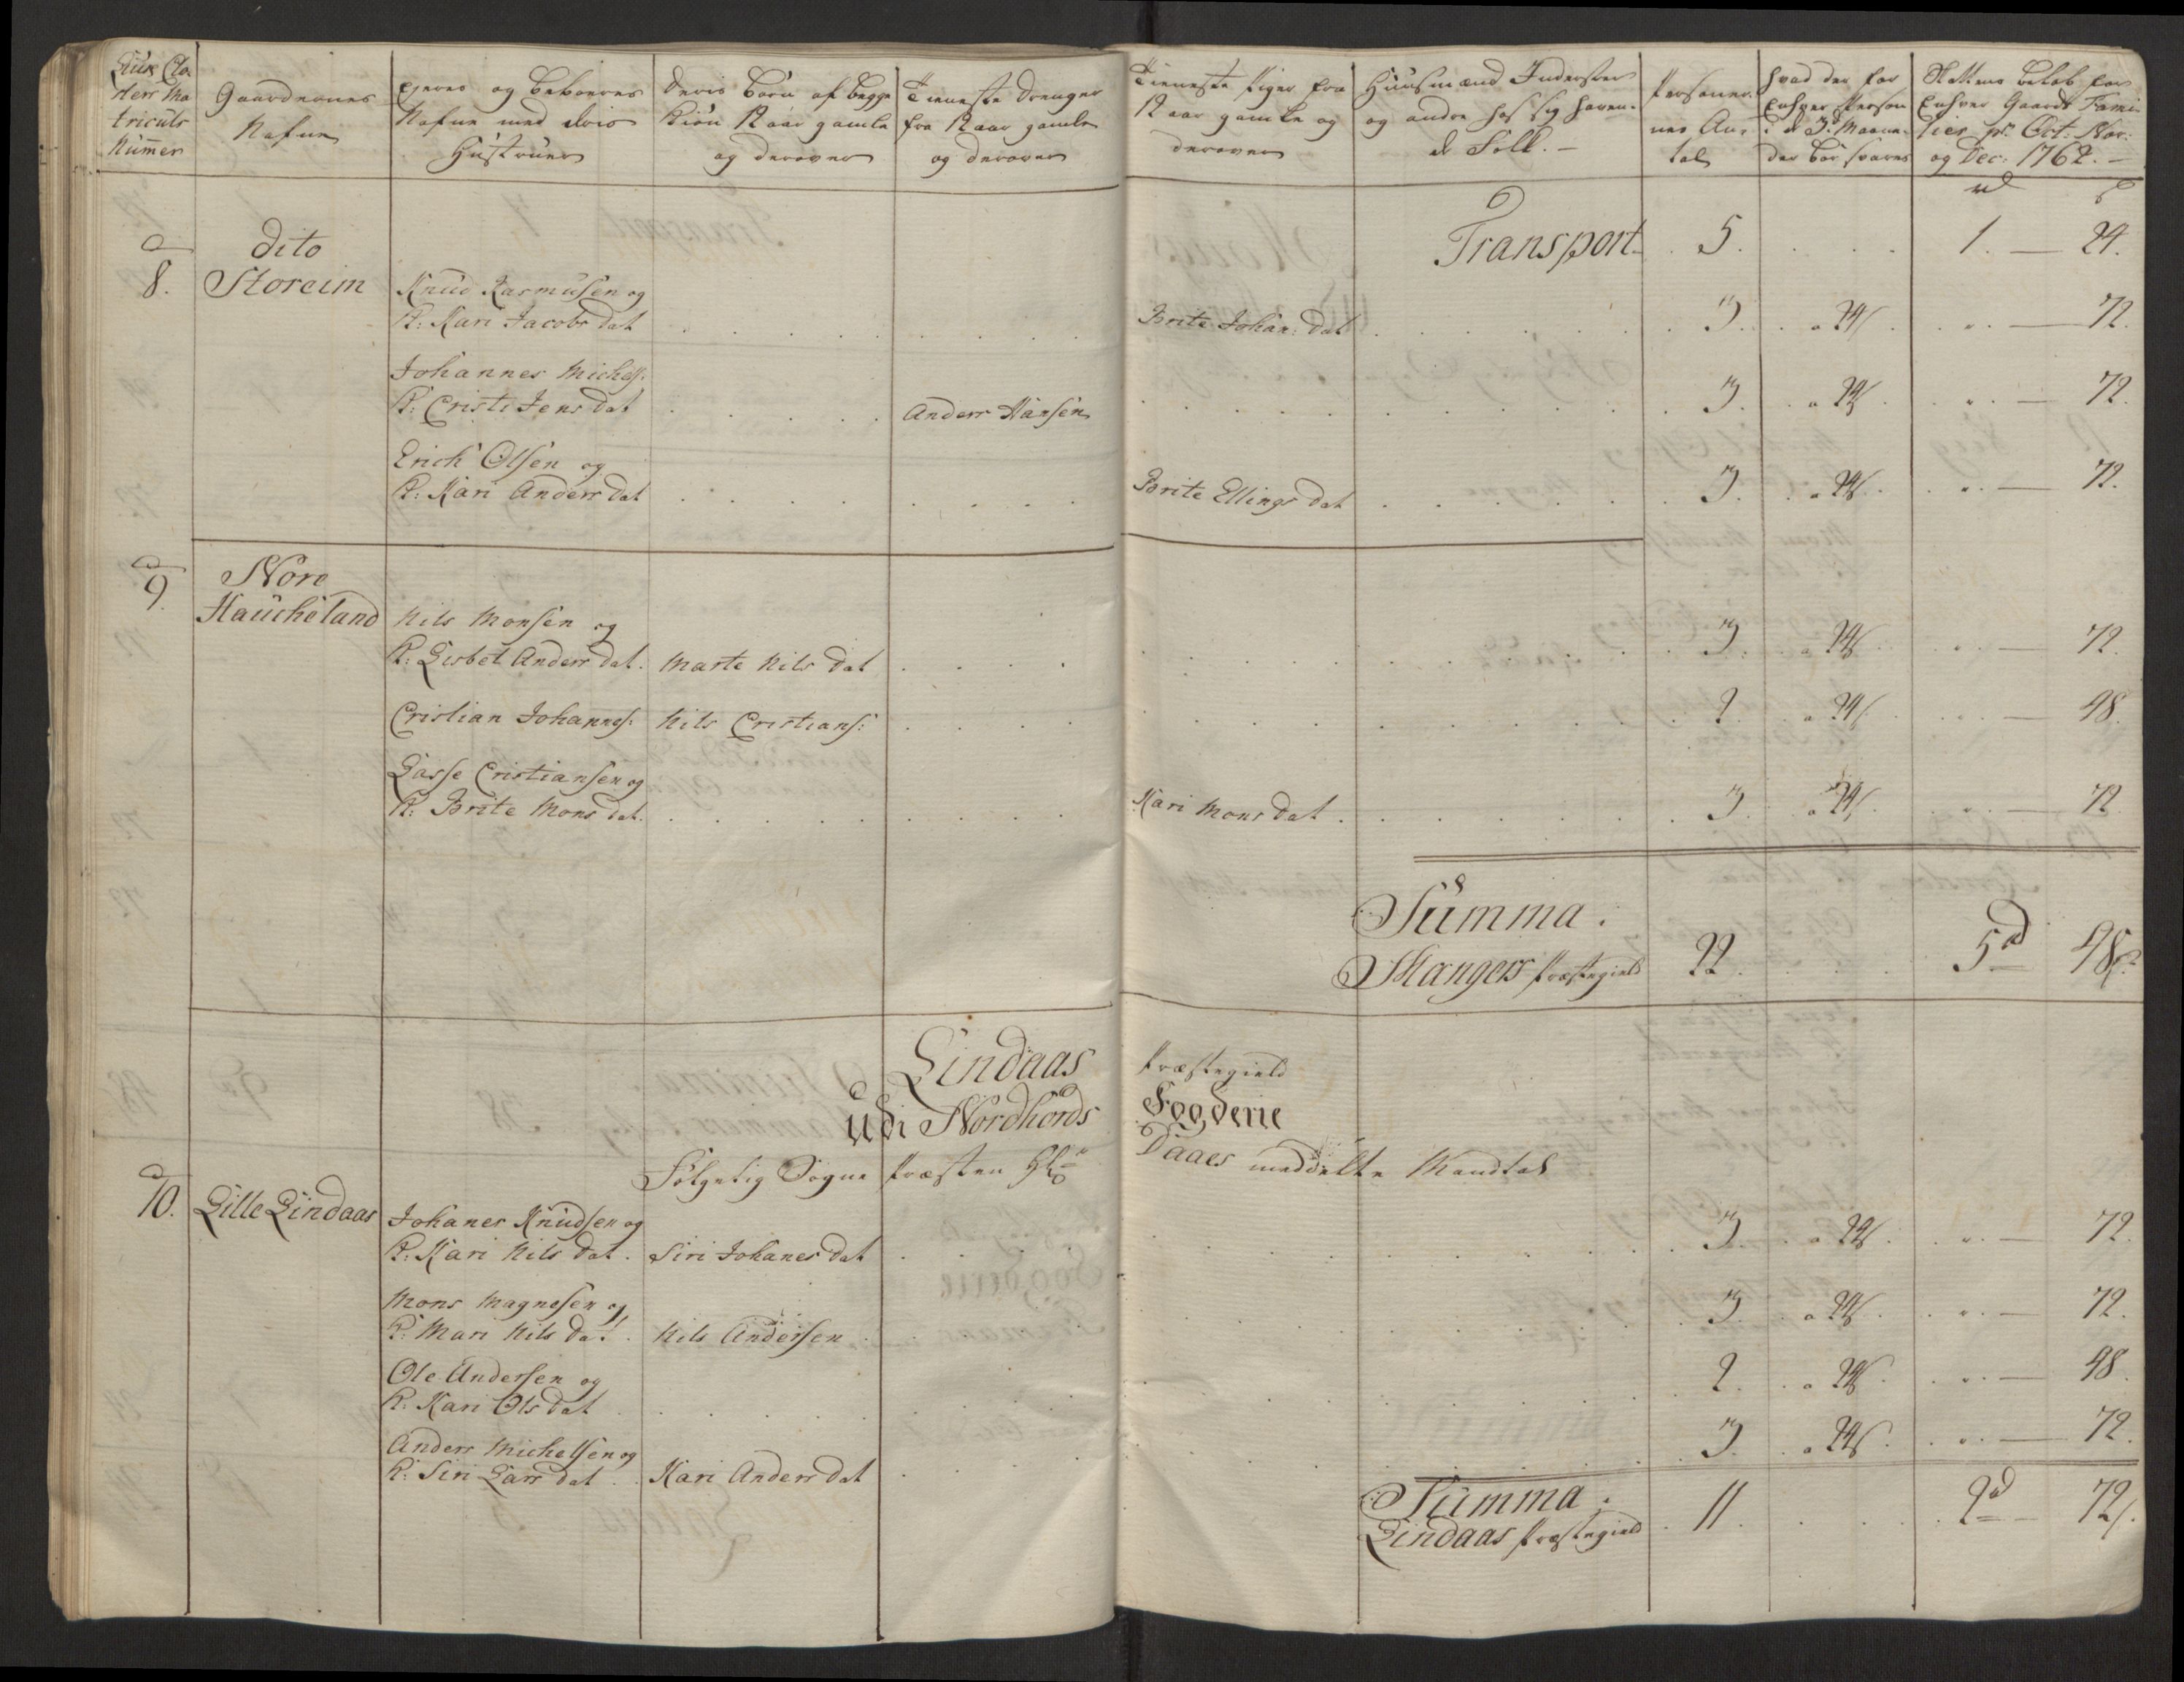 Lux Clo-
sters Ma
triculs
Numer
Gaardernes
Nafne
Ejeres og Beboeres
Nafne med deris
Hustruer
Deris Børn af begge
Kiøn 12 aar gamle
og derover
Tieneste Drenger
fra 12 aar gamle
og derover
Tieneste Piger fra
12 aar gamle og
derover
Huusmænd Inderster
og andre hos sig haven-
de Folk. -
Personer-
nes An-
tal
hvad der for
Enhver Person
i de 3de Maane-
der bør svares
Skattens beløb for
Enhver Gaards Fami-
lier pr. Oct: Nov:
og Dec: 1762. -
rd ß
Transport. 5. 1. — 24.
8. dito
Storeim
Knud Rasmusen og
K: Kari Jacobs dat Brite Johan: dat 3. a 24ß. " — 72.
Johannes Michels:
K: Cristi Jens dat Anders Hansen 3. a 24ß. " — 72.
Erich Olsen og
K: Kari Anders dat Brite Ellings dat 3. a 24ß. " — 72.
9. Nore
Haucheland
Nils Monsen og
K: Lisbet Anders dat. Marte Nils dat 3. a 24ß " — 72.
Cristian Johannes: Nils Cristians: 2. a 24ß. " — 48.
Lasse Cristiansen og
K: Brite Mons dat. Kari Mons dat. 3. a 24ß. " — 72
Summa.
Mangers Præstegield 22. 5d 48ß
Lindaas Præstegield
udi Nordhords Fogderie
Følgelig Sogne Præsten Hr Daaes meddelte Mandtal
10. Lille Lindaas Johanes Knudsen og
K: Kari Nils dat. Siri Johanes dat 3. a 24ß. " — 72.
Mons Magnesen og
K: Mari Nils dat. Nils Andersen 3. a 24ß. " — 72.
Ole Andersen og
K: Kari Ols dat 2. a 24ß. " — 48.
Anders Michelsen og
K: Siri Lars dat. Kari Anders dat 3. a 24ß. " — 72.
Summa.
Lindaas Præstegield. 11. 2d 72ß.